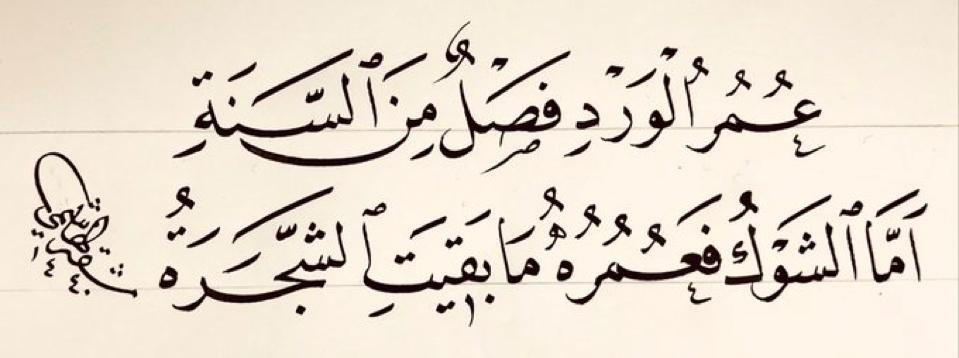 عُمُرُ الْوَرْدِ فَصْلٌ مِنَ ٱلسَّنَةِ
اَمَّا ٱلشَوْكُ فَعُمُرُهُ مَا بَقِيَتِ ٱلشَّجَرَةُ
١٤٤٠